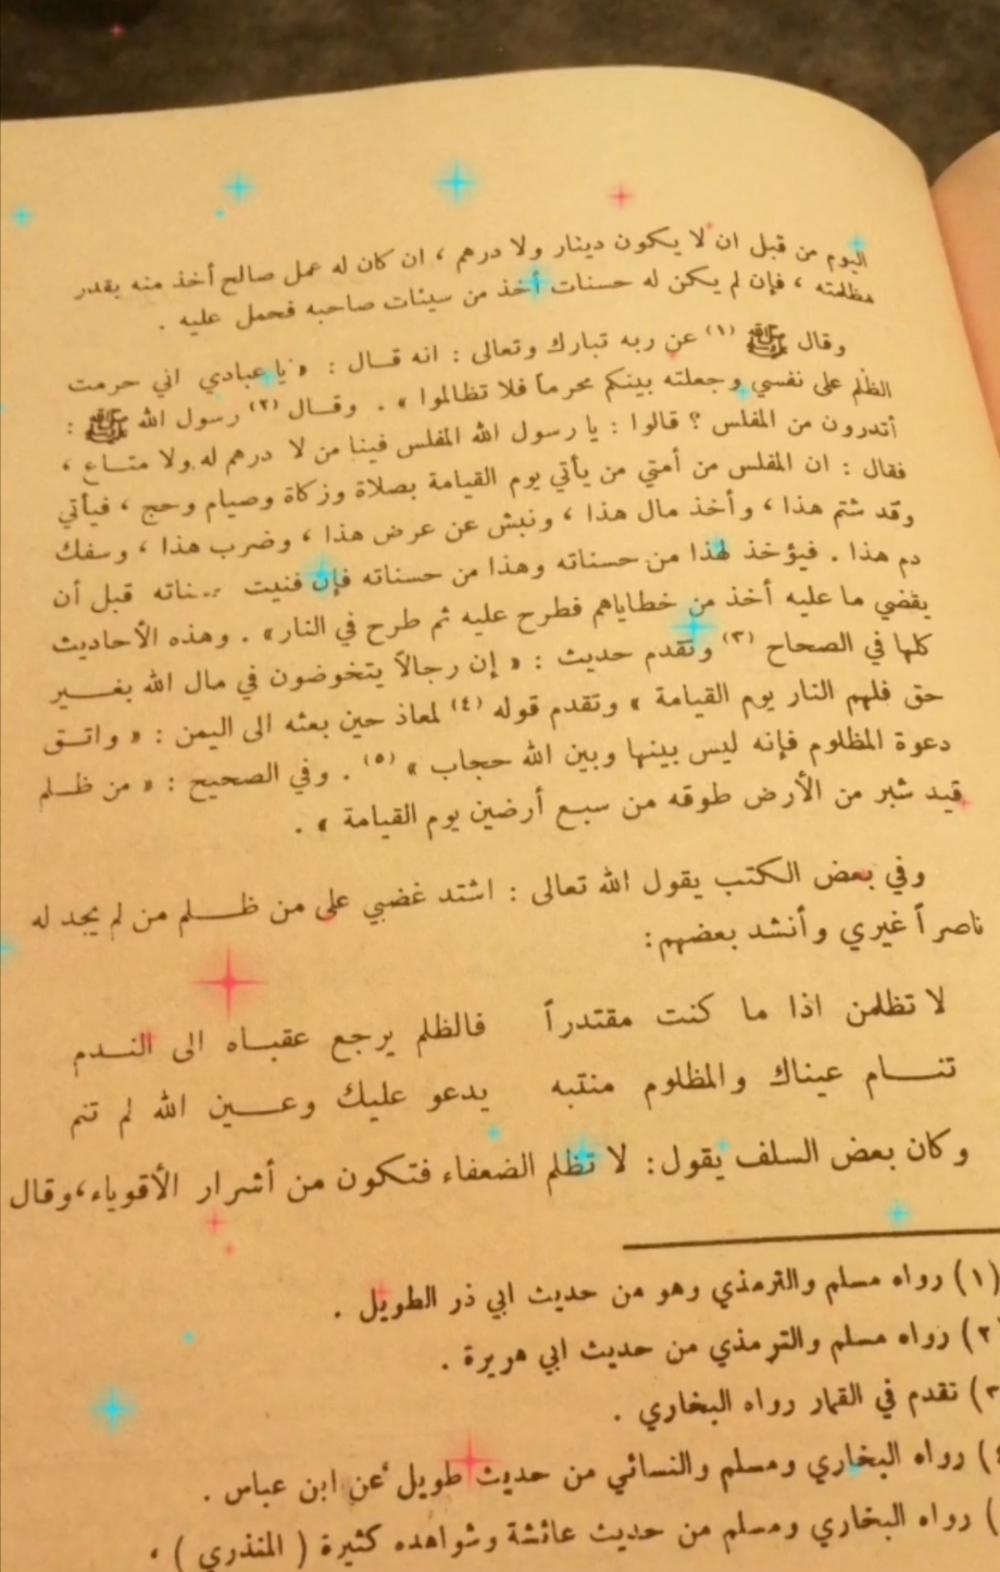 اليوم من قبل ان لا يكون دينار ولا درهم ، ان كان له عمل صالح أخذ منه بقدر
مظلمته ، فإن لم يكن له حسنات أخذ من سيئات صاحبه فحمل عليه .
وقال ﷺ (١) عن ربه تبارك وتعالى : انه قال : « يا عبادي اني حرمت
الظلم على نفسي وجعلته بينكم محرماً فلا تظالموا » . وقال (٢) رسول الله ﷺ :
أتدرون من المفلس ؟ قالوا : يا رسول الله المفلس فينا من لا درهم له ولا متاع ،
فقال : ان المفلس من أمتي من يأتي يوم القيامة بصلاة وزكاة وصيام وحج ، فيأتي
وقد شتم هذا ، وأخذ مال هذا ، ونبش عن عرض هذا ، وضرب هذا ، وسفك
دم هذا . فيؤخذ لهذا من حسناته وهذا من حسناته فإن فنيت حسناته قبل أن
يقضي ما عليه أخذ من خطاياهم فطرح عليه ثم طرح في النار» . وهذه الأحاديث
كلها في الصحاح (٣) وتقدم حديث : « إن رجالاً يتخوضون في مال الله بغير
حق فلهم النار يوم القيامة » وتقدم قوله (٤) لمعاذ حين بعثه الى اليمن : « واتق
دعوة المظلوم فإنه ليس بينها وبين الله حجاب » (٥) . وفي الصحيح : « من ظلم
قيد شبر من الأرض طوقه من سبع أرضين يوم القيامة » .
وفي بعض الكتب يقول الله تعالى : اشتد غضبي على من ظلم من لم يجد له
ناصراً غيري وأنشد بعضهم:
لا تظلمن اذا ما كنت مقتدراً فالظلم يرجع عقباه الى الندم
تنام عيناك والمظلوم منتبه يدعو عليك وعين الله لم تنم
وكان بعض السلف يقول: لا تظلم الضعفاء فتكون من أشرار الأقوياء،وقال
(١) رواه مسلم والترمذي وهو من حديث ابي ذر الطويل .
٢) رواه مسلم والترمذي من حديث ابي هريرة .
٣) تقدم في القمار رواه البخاري .
٤) رواه البخاري ومسلم والنسائي من حديث طويل عن ابن عباس .
) رواه البخاري ومسلم من حديث عائشة وشواهده كثيرة ( المنذري ) .